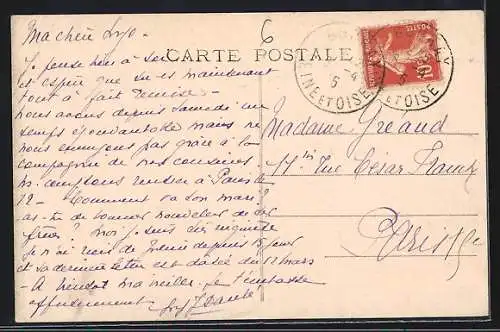 Ma chère Lyse -
Je pense bien à toi
et espère que tu es maintenant
tout à fait remise -
nous avons depuis samedi un
temps épouvantable mais ne
nous ennuyons pas grâce à la
compagnie de nos cousines
ns. comptons rentrer à Paris le
12 - Comment va ton mari
as-tu de bonnes nouvelles de tes
frères ? moi je suis bien inquiète
je n'ai rien de depuis 15 jours
et sa dernière lettre est datée du 17 mars
- A bientôt ma vieille je t'embrasse
affectueusement
CARTE POSTALE
6
SEINE ET OISE
POSTES
10
ET OISE
Madame Gréaud
11 bis rue César Franck
Paris 15e